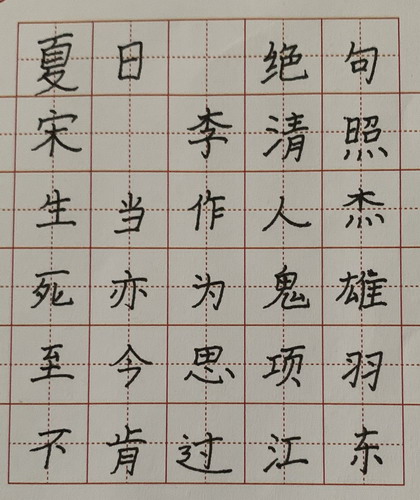 夏日 绝句
宋 李清照
生当作人杰
死亦为鬼雄
至今思项羽
不肯过江东